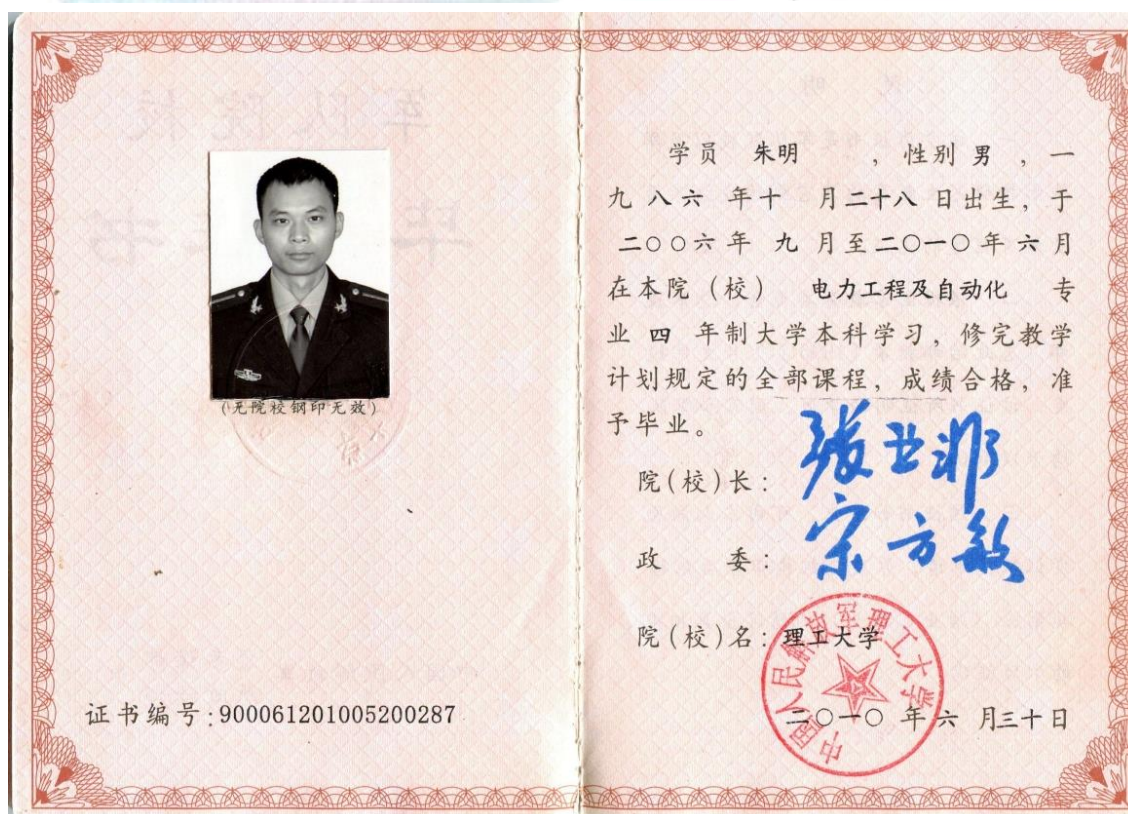 (无院校钢印无效)
证书编号:900061201005200287
学员 朱明 ，性别 男 ，一
九八六 年十 月二十八 日出生，于
二〇〇六年 九 月至二〇一〇年 六月
在本院（校） 电力工程及自动化 专
业 四 年制大学本科学习，修完教学
计划规定的全部课程，成绩合格，准
予毕业。
院(校)长：张亚非
政 委：宗方敏
院(校)名：理工大学
中国人民解放军理工大学
二〇一〇 年 六 月三十日